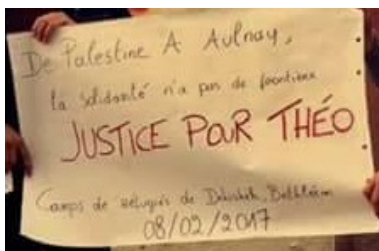 De Palestine A Aulnay,
la solidarité n'a pas de frontière
JUSTICE POUR THÉO
Camps de réfugiés de Deheisheh, Bethléem
08/02/2017